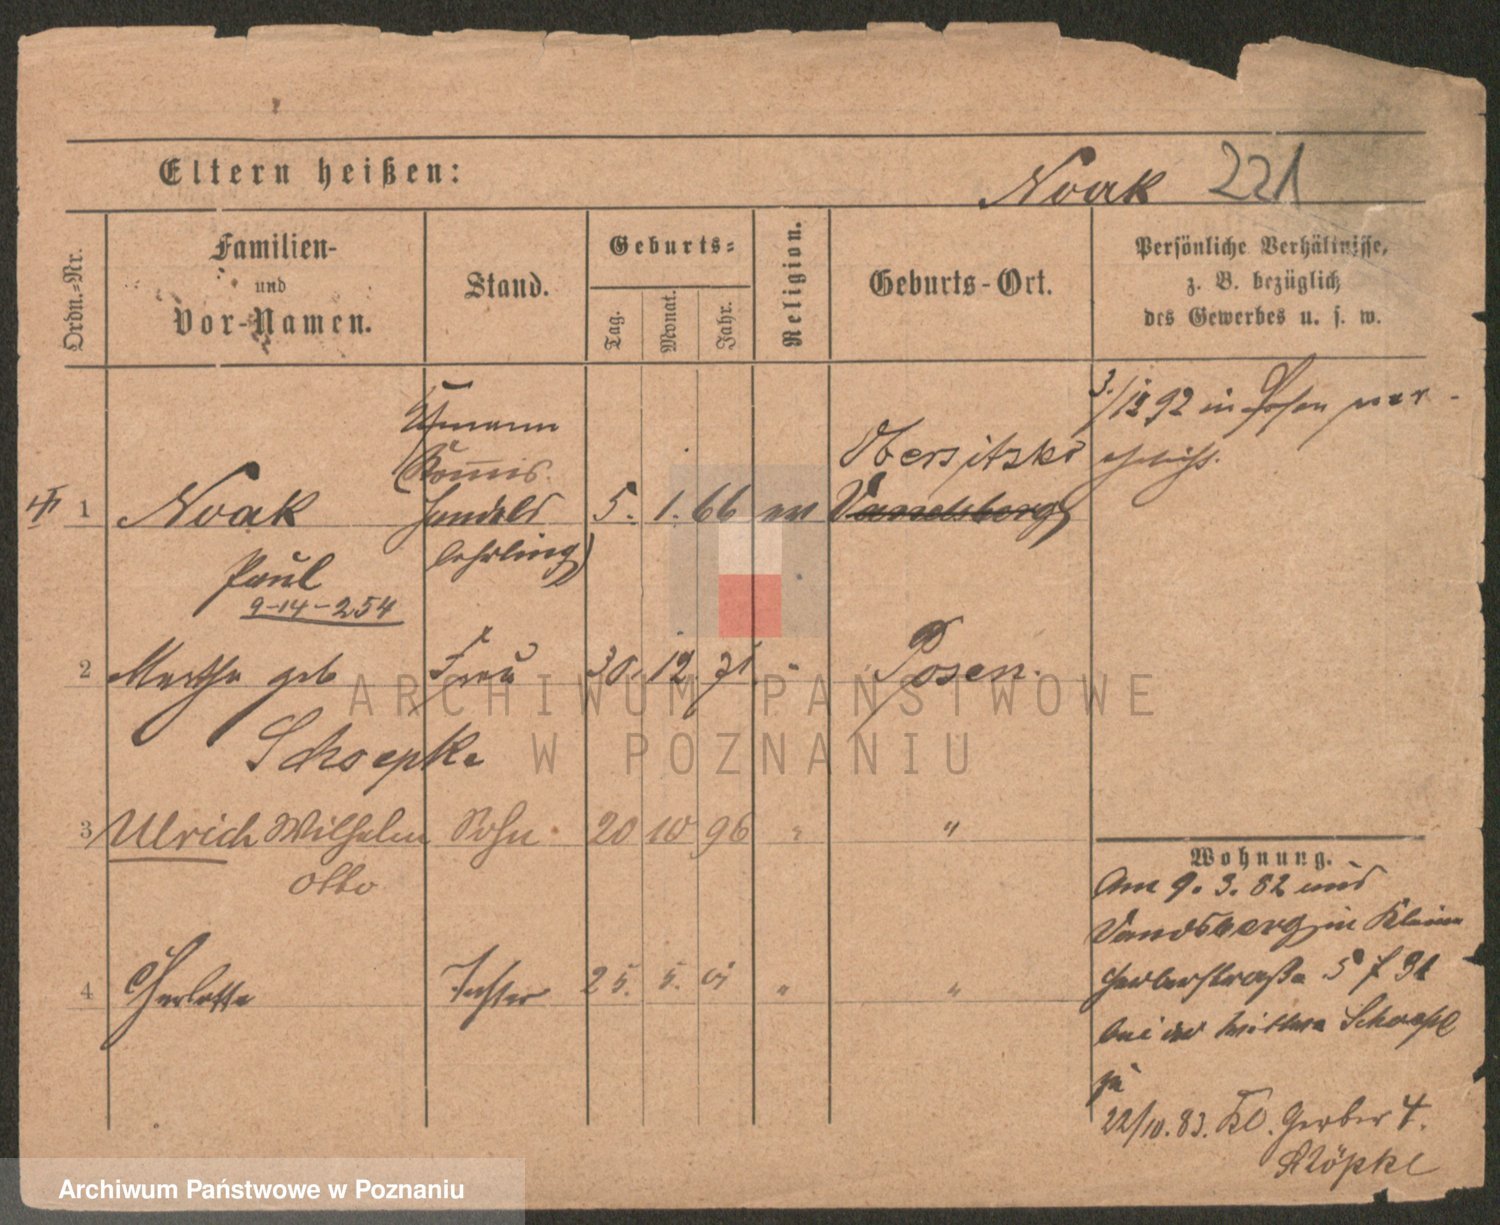 Eltern heißen:
Noak 221
Ordn.-Nr.
Familien-
und
Vor-Namen.
Stand.
Geburts-
Tag.
Monat.
Jahr.
Religion.
Geburts-Ort.
Persönliche Verhältnisse,
z. B. bezüglich
des Gewerbes u. s. w.
3./12 92 in Posen ver-
ehelicht.
Obersitzko
1 Noak
Handels
lehrling)
5. 1. 66 ev
Vandsberg
Paul
9-14-254
2 Martha geb
Schoepke
Frau
30. 12 71 "
Posen.
3 Ulrich Wilhelm
Otto
Sohn
20 10 96 "
"
4 Charlotte
Tochter
25. 5. 01 "
"
Wohnung.
Am 9. 3. 82 aus
Vandsberg in Kleine
Gerberstraße 5
bei der Wittwe
22/10. 83. Kl. Gerber 4.
ARCHIWUM PAŃSTWOWE
W POZNANIU
Archiwum Państwowe w Poznaniu